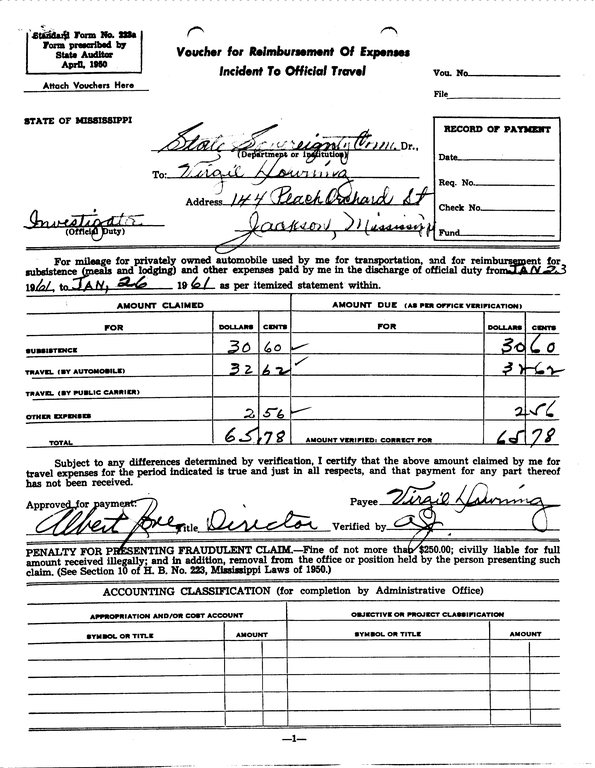 Standard Form No. 223a
Form prescribed by
State Auditor
April, 1950
Attach Vouchers Here
Voucher for Reimbursement Of Expenses
Incident To Official Travel
Vou. No.
File
STATE OF MISSISSIPPI
State Sovereignty Comm. Dr.,
(Department or Institution)
To: Virgil Downing
Address 144 Peach Orchard St
Jackson, Mississippi
Investigator
(Official Duty)
RECORD OF PAYMENT
Date
Req. No.
Check No.
Fund
For mileage for privately owned automobile used by me for transportation, and for reimbursement for
subsistence (meals and lodging) and other expenses paid by me in the discharge of official duty from JAN 23
1961, to JAN, 26 1961 as per itemized statement within.
AMOUNT CLAIMED AMOUNT DUE (AS PER OFFICE VERIFICATION)
FOR DOLLARS CENTS FOR DOLLARS CENTS
SUBSISTENCE 30 60 30 60
TRAVEL (BY AUTOMOBILE) 32 62 32 62
TRAVEL (BY PUBLIC CARRIER)
OTHER EXPENSES 2 56 2 56
TOTAL 65,78 AMOUNT VERIFIED: CORRECT FOR 65 78
Subject to any differences determined by verification, I certify that the above amount claimed by me for
travel expenses for the period indicated is true and just in all respects, and that payment for any part thereof
has not been received.
Approved for payment: Payee Virgil Downing
Albert Jones Title Director Verified by
PENALTY FOR PRESENTING FRAUDULENT CLAIM.—Fine of not more than $250.00; civilly liable for full
amount received illegally; and in addition, removal from the office or position held by the person presenting such
claim. (See Section 10 of H. B. No. 223, Mississippi Laws of 1950.)
ACCOUNTING CLASSIFICATION (for completion by Administrative Office)
APPROPRIATION AND/OR COST ACCOUNT OBJECTIVE OR PROJECT CLASSIFICATION
SYMBOL OR TITLE AMOUNT SYMBOL OR TITLE AMOUNT
—1—